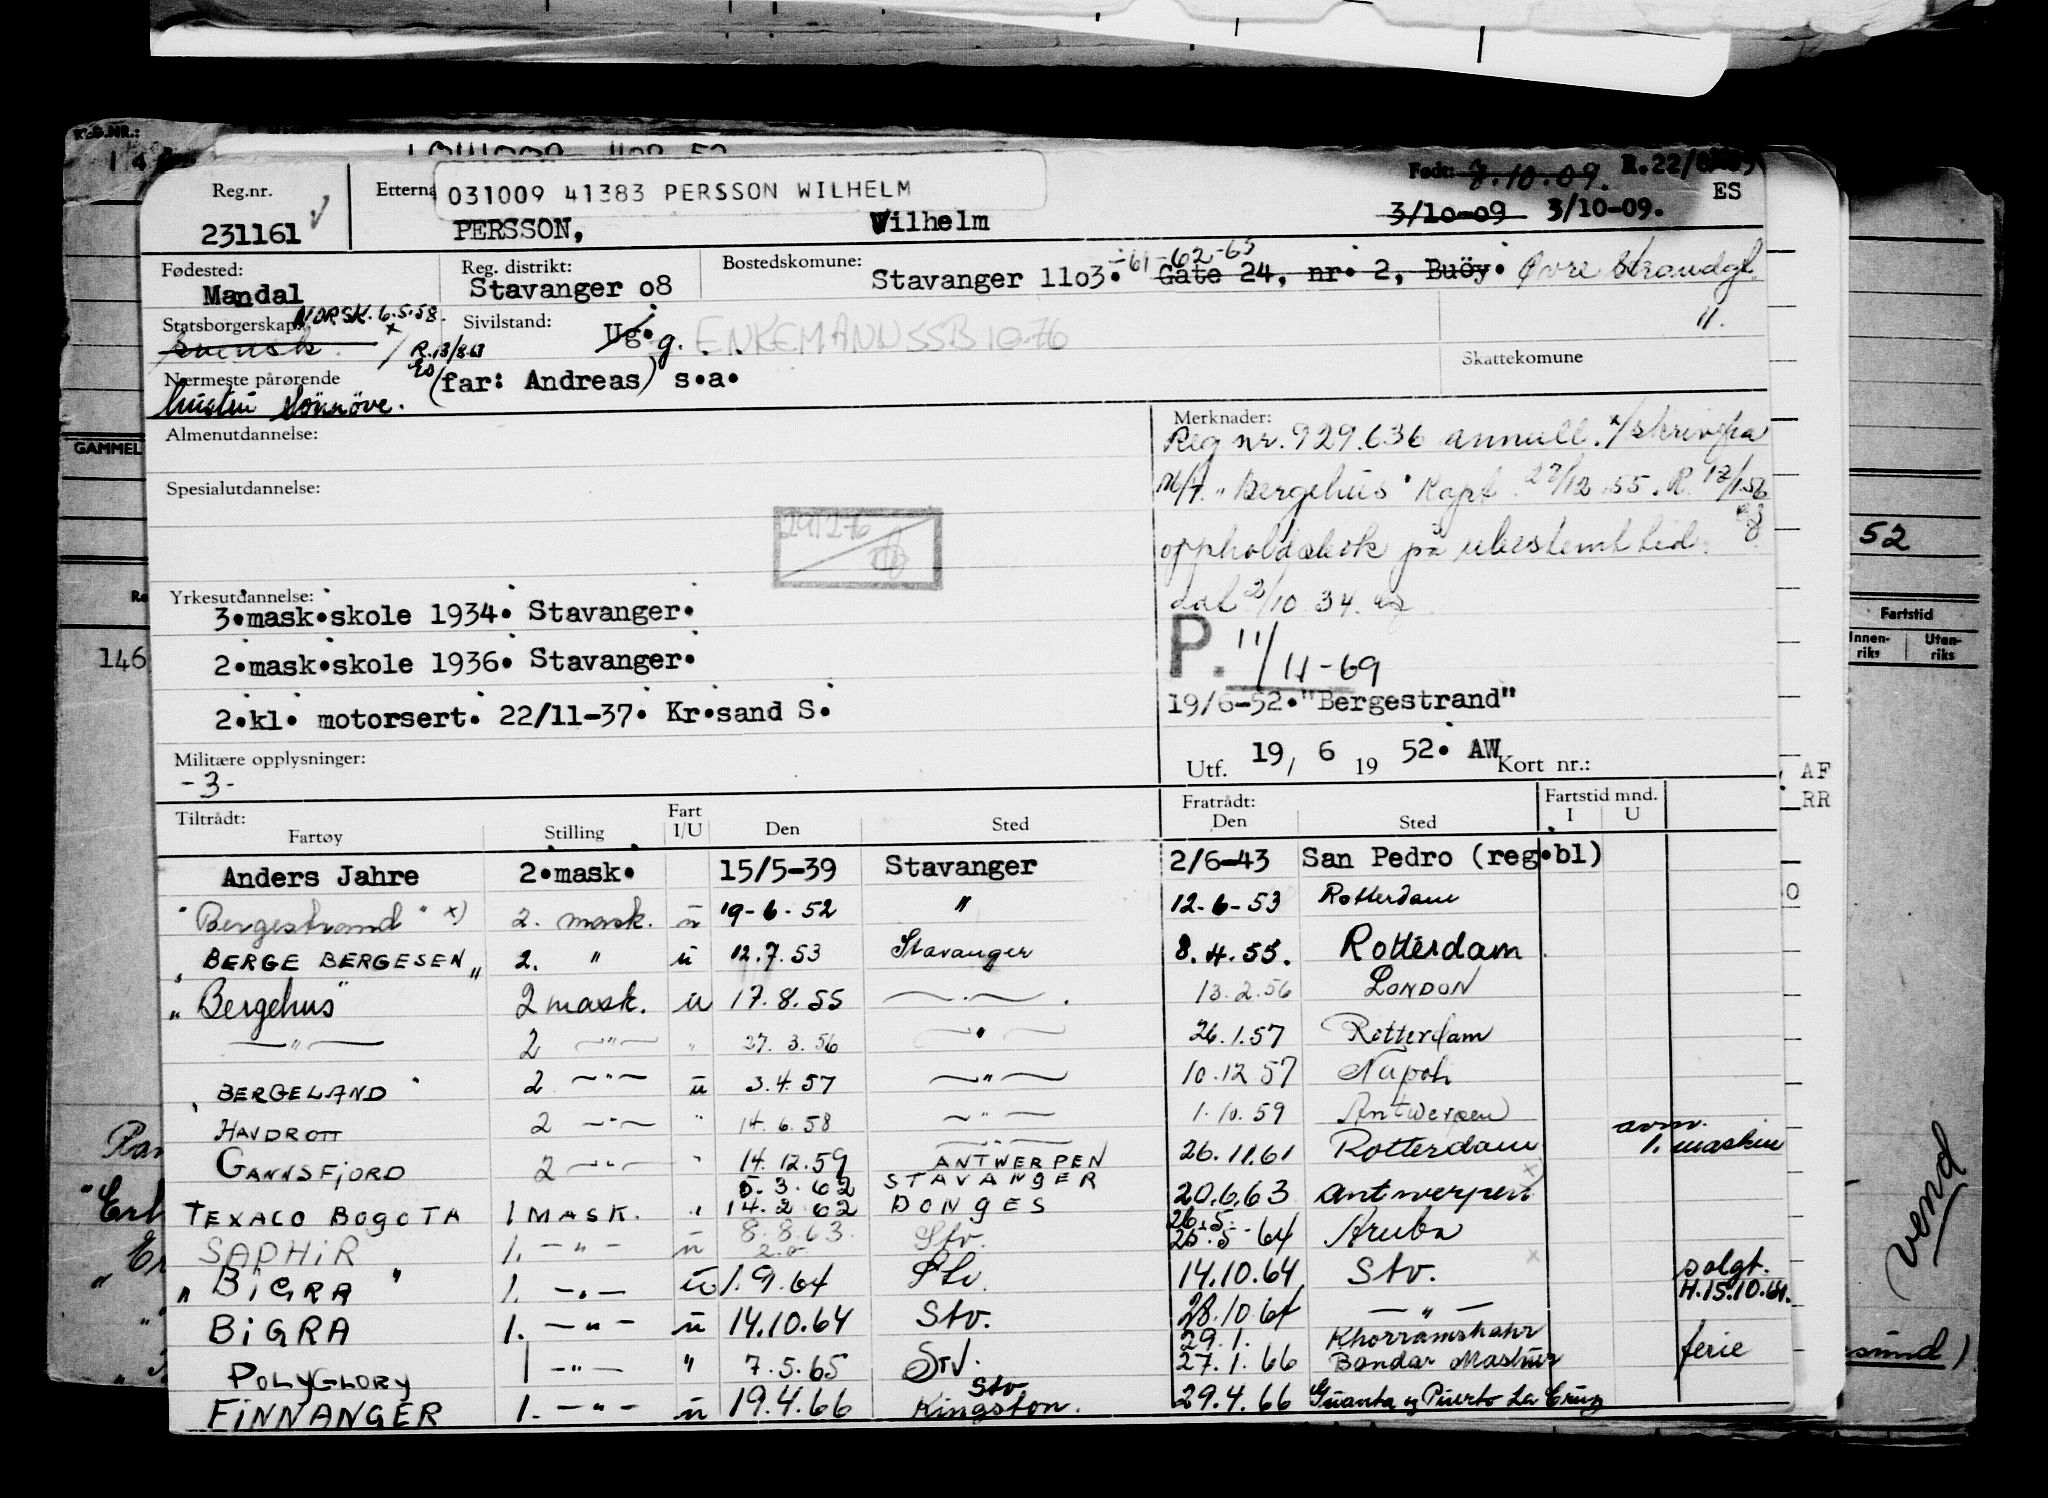 Reg.nr.
231161
Etterna
031009 41383 PERSSON WILHELM
PERSSON, Wilhelm
Født: 8.10.09. R.22/
3/10-09 3/10-09.
ES
Fødested:
Mandal
Reg. distrikt:
Stavanger o8
Bostedskomune: Stavanger 11o3. -61-62-63
Gate 24, nr. 2, Buöy. Øvre Strandgt.
11.
Statsborgerskap: NORSK. 6.5.58.
svensk. x/ R.13/8.63
Sivilstand: Ug. g. ENKEMANN SSB 10.76
Skattekomune
Nærmeste pårørende (far: Andreas) s.a.
hustru Sönnöve.
Almenutdannelse:
Spesialutdannelse:
291276
Merknader:
Reg nr. 929.636 annull. x/ skriv fra
M/T. "Bergehus" Kapt. 27/12.55. R. 17/1.56
oppholdsbok på ubestemt tid.
dat 2/10 34.
P. 11/11-69
19/6-52."Bergestrand"
Utf. 19/ 6 19 52. AW Kort nr.:
Yrkesutdannelse:
3.mask.skole 1934. Stavanger.
2.mask.skole 1936. Stavanger.
2.kl. motorsert. 22/11-37. Kr.sand S.
Militære opplysninger:
-3-
Tiltrådt:
Fartøy Stilling Fart I/U Den Sted
Fratrådt:
Den Sted Fartstid mnd. I U
Anders Jahre 2.mask. 15/5-39 Stavanger 2/6-43 San Pedro (reg.bl)
"Bergestrand" x) 2. mask. u 19-6-52 " 12-6-53 Rotterdam
"BERGE BERGESEN" 2. " u 12.7.53 Stavanger 8.4.55. Rotterdam
"Bergehus" 2 mask. u 17.8.55 — . — 13.2.56 LONDON
—"— 2 —"— " 27.3.56 — " — 26.1.57 Rotterdam
"BERGELAND" 2 —"— u 3.4.57 —"— 10.12.57 Napoli
HAVDROTT 2 —"— " 14.6.58 —"— 1.10.59 Antwerpen
GANNSFJORD 2 —"— " 14.12.59 ANTWERPEN 26.11.61 Rotterdam avm. 1. maskin
5.3.62 STAVANGER
TEXACO BOGOTA 1 MASK. " 14.2 62 DONGES 20.6.63 Antwerpen x)
SAPHIR 1. —"— u 8.8.63. Stv. 26.5.
25.5-64 Aruba
"BIGRA" 1. —"— u 1.9.64 Stv. 14.10.64 Stv. x solgt.
H.15.10.64.
BIGRA 1. —"— u 14.10.64 Stv. 28.10.64 —"—
29.1. Khorramshahr
POLYGLORY 1 —"— " 7.5.65 Stv. 27.1.66 Bandar Mashur ferie
Stv
FINNANGER 1. —"— u 19.4.66 Kingston. 29.4.66 Guanta og Puerto La Cruz
REG.NR.:
GAMMEL
146
52
Fartstid
Innen-
riks
Uten-
riks
AF
RR
vend
sund)